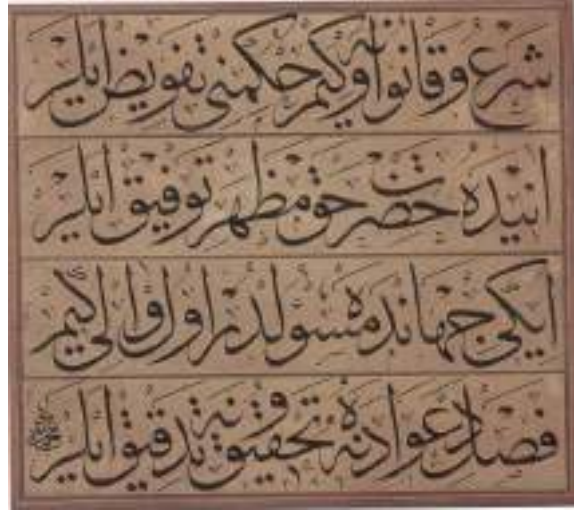 شرع و قانونه اوكيم حكمنى تفويض ايلر
انيده حضرت حق مظهر توفيق ايلر
ايكى جهانده مسؤلدر اول والى كيم
فصل دعواده نه تحقيق و نه تدقيق ايلر